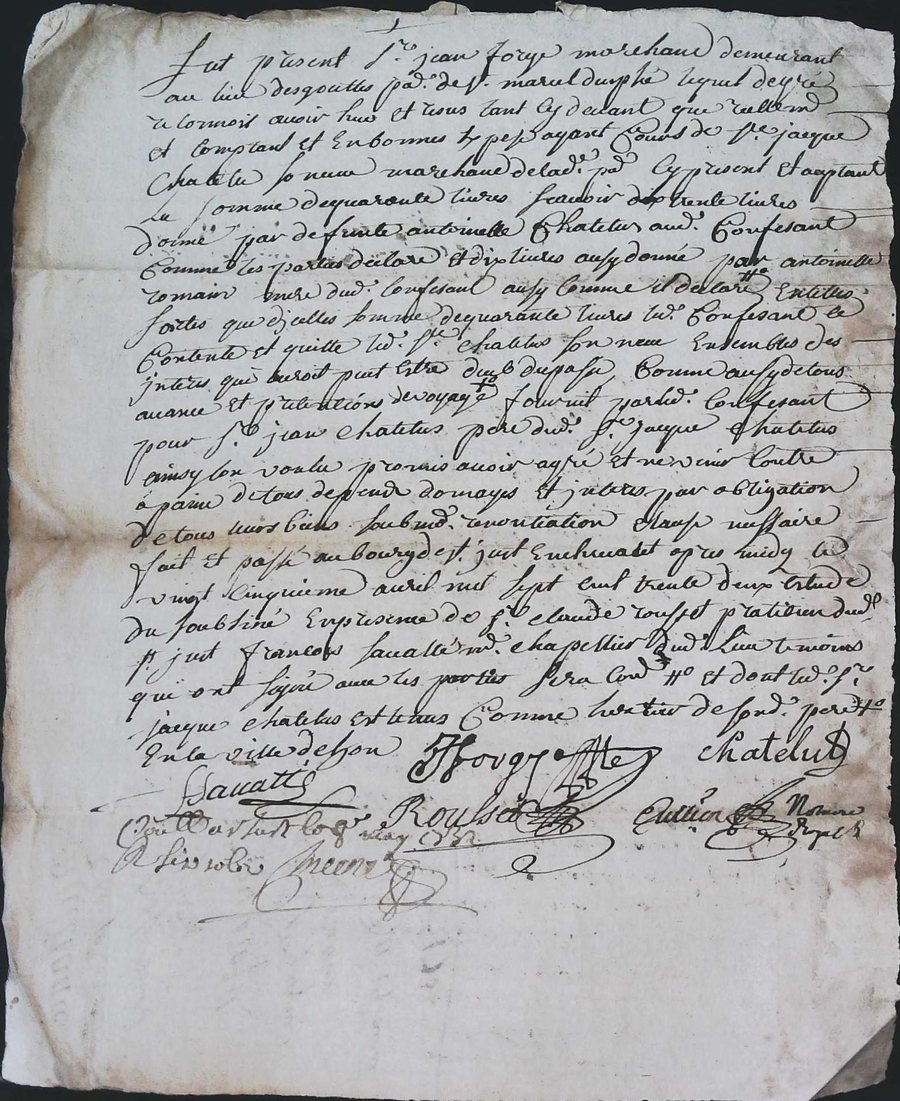 fut present Sr. jean forge marchand demeurant
au lieu desgouttes pad. de St. marcel durphé lequel degré
reconnoit avoir heu et receus tant cy devant que reellemd
et comptant et En bonnes Espese ayant Cours de Sr. jacque
Chatelus son neveu marchand deladt. pd. Cy present et aceptant
La somme dequarante livres scavoir trente livres
donné par defunte antoinette Chatelus aud. Confesant
Comme les parties declare Et dix livres ausy donné par antoinette
romain mere dud. Confesant ausy Comme il declare Entelles
sortes que d'jcelles somme dequarante livres led. Confesant se
Contente et quitte led. Sr. Chatelus son neveu Ensembles des
jnteres quy auroit peut Estre dub du pasé, Comme ausy detous
avance et pretentions de voyage fournit parled. Confesant
pour Sr. jean Chatelus pere dud. Sr. jacque Chatelus
ainsy lon voulu promis avoir agré et ne venir Contre
à paine detous depends domages et jnteres par obligation
detous leurs biens soubmd. renontiation clause nessaire
fait et passé au bourg de St. just En chevalet apres midy le
vingt Cinquieme avril mil sept cent trente deux Estude
du soubsiné En presence de Sr. claude rousset pratitien dud.
St. just francois savatte md. chapellier dud. Lieu temoins
qui ont signé avec les parties sera Cond. et dont led. Sr.
jacque chatelus est tenus Comme heretier de sond. pere
En la ville de lion
JForge chatelus
Savatte Rousset Notaire
Royal
a St just le 8e may 1732
R six solz